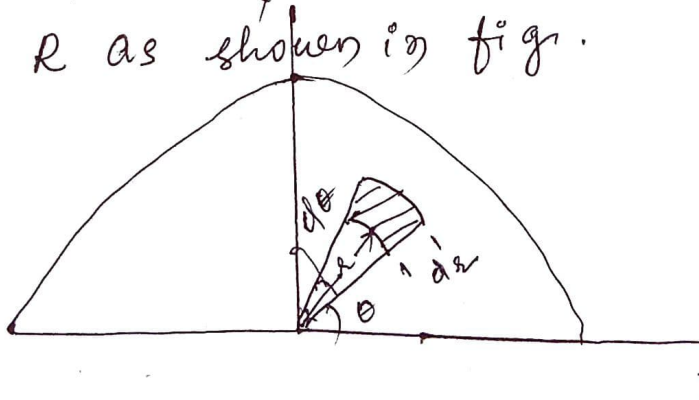 R as shown in fig.
dθ
r
dr
θ